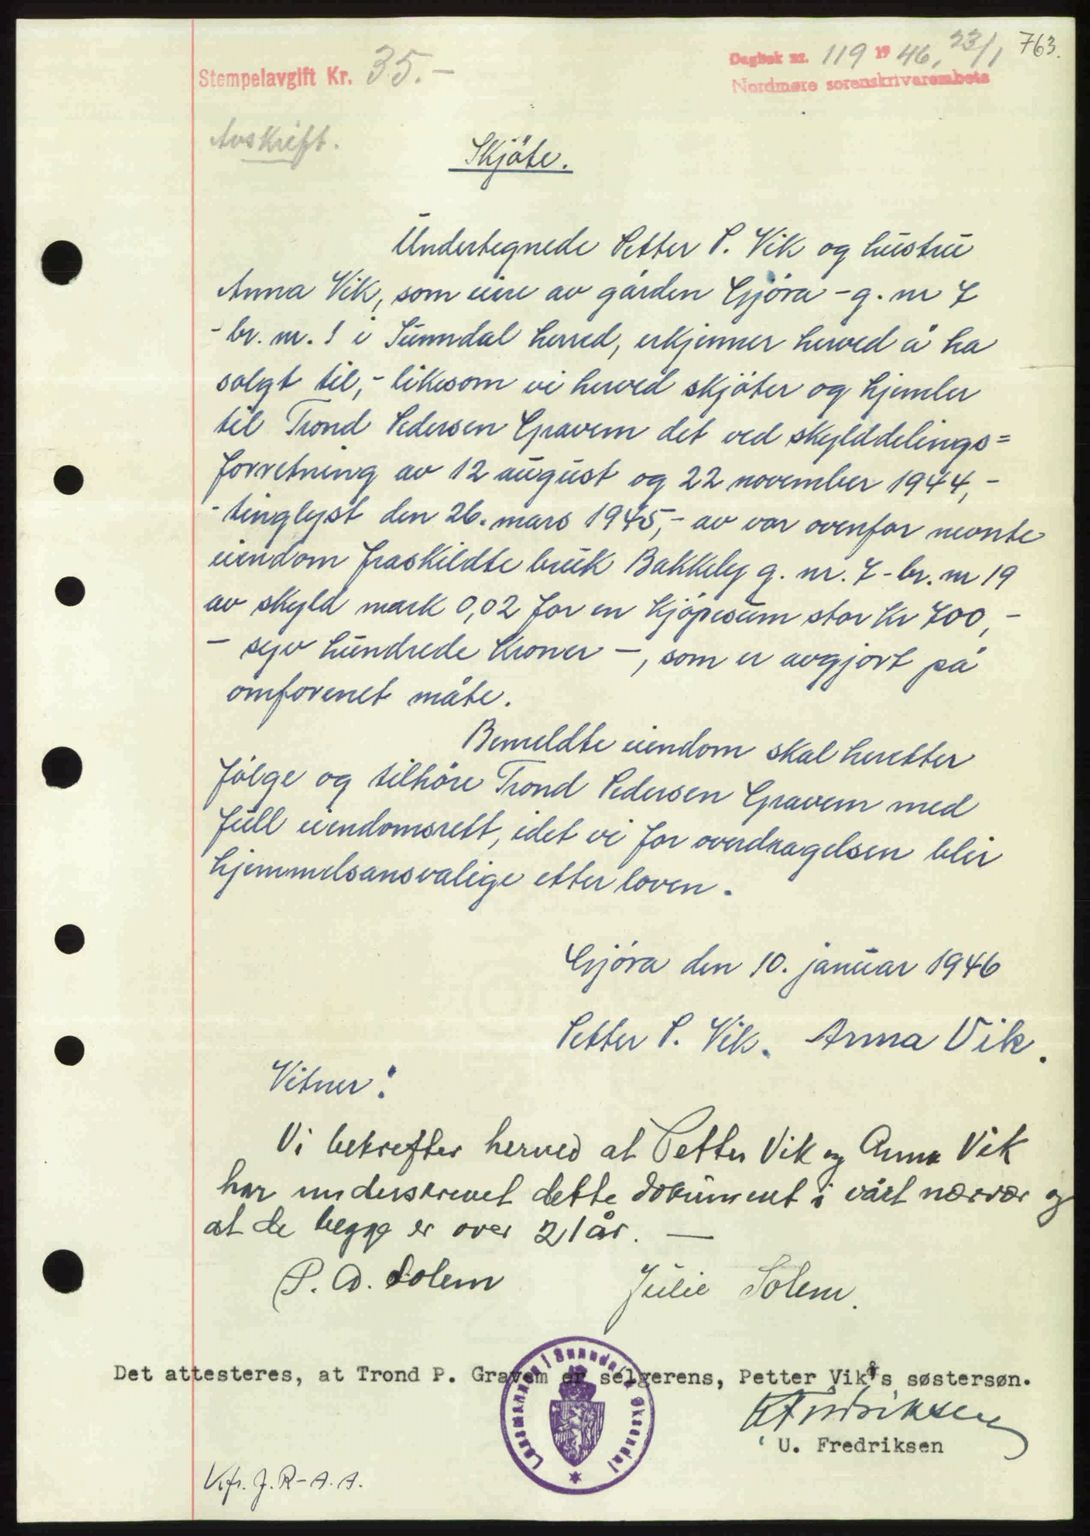 763.
Stempelavgift Kr. 35.-
Dagbok nr. 119 1946, 23/1
Nordmøre sorenskriverembete
Avskrift.
Skjöte.
Undertegnede Petter P. Vik og hustru
Anna Vik, som eiere av gården Gjöra - g. nr 7
- br. nr. 1 i Sunndal herred, erkjenner herved å ha
solgt til, - likesom vi herved skjöter og hjemler
til Trond Pedersen Gravem det ved skylddelings=
forretning av 12 august og 22 november 1944, -
- tinglyst den 26. mars 1945, - av vår ovenfor nevnte
eiendom fraskildte bruk Bakkely g. nr. 7 - br. nr 19
av skyld mark 0,02 for en kjöpesum stor kr 700, -
- syv hundrede kroner -, som er avgjort på
omforenet måte.
Bemeldte eiendom skal heretter
fölge og tilhöre Trond Pedersen Gravem med
full eiendomsrett, idet vi for overdragelsen blir
hjemmelsansvarlige etter loven.
Gjöra den 10. januar 1946
Petter P. Vik. Anna Vik.
Vitner:
Vi bekrefter herved at Petter Vik og Anna Vik
har underskrevet dette dokument i vårt nærvær og
at de begge er over 21 år. —
P. A. Solem Julie Solem.
Det attesteres, at Trond P. Gravem er selgerens, Petter Vik's søstersøn.
U Fredriksen
U. Fredriksen
Lensmannen i Sunndal og Øksendal
Kfr. J. R - A. A.